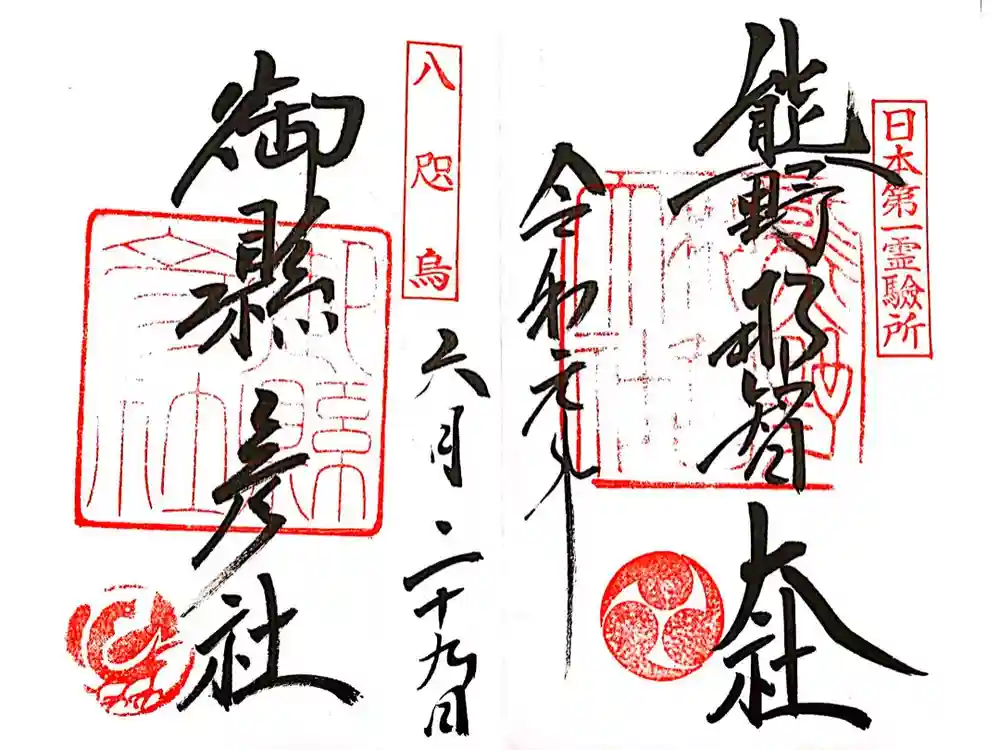 日本第一霊驗所
熊野那智大社
令和元年
八咫烏
六月二十九日
御縣彦社